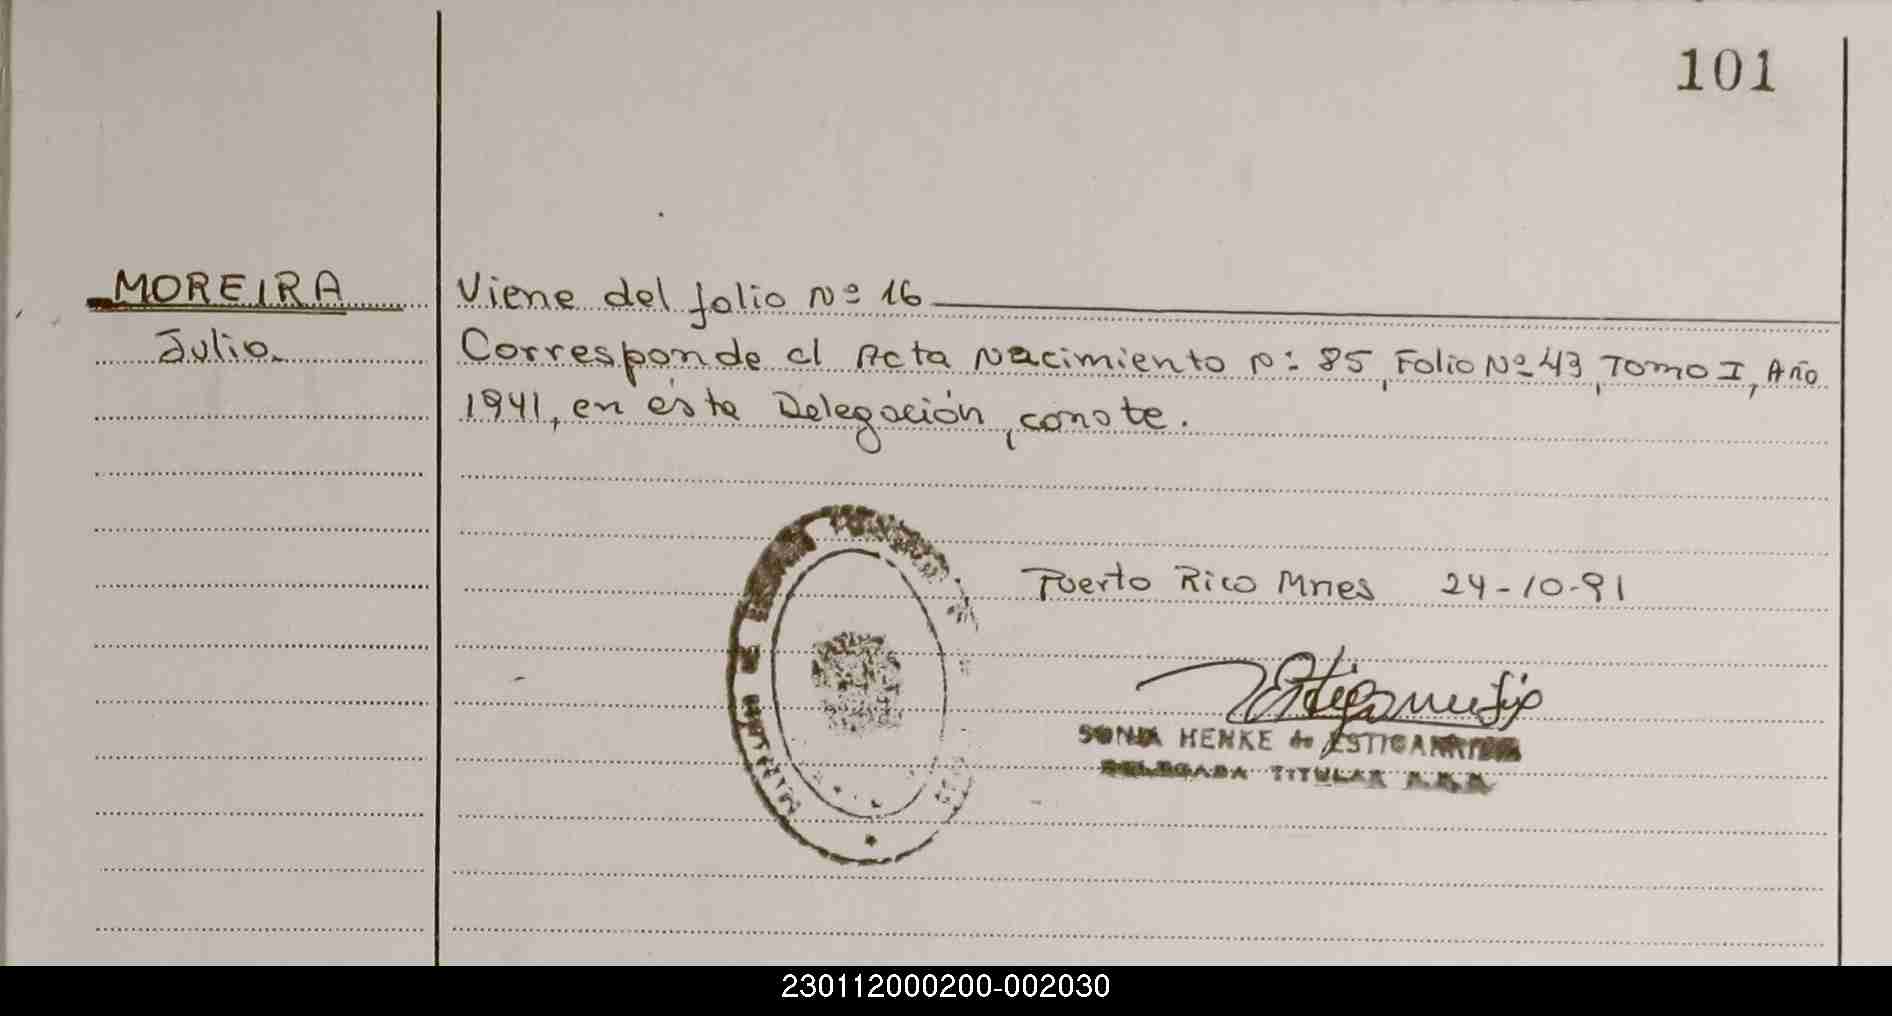 101
MOREIRA
Julio.
Viene del folio Nº 16
Corresponde al Acta Nacimiento Nº 85, Folio Nº 43, Tomo I, Año
1941, en ésta Delegación, conste.
Puerto Rico Mnes 24-10-91
SONIA HENKE de ESTIGARRIBIA
DELEGADA TITULAR
230112000200-002030